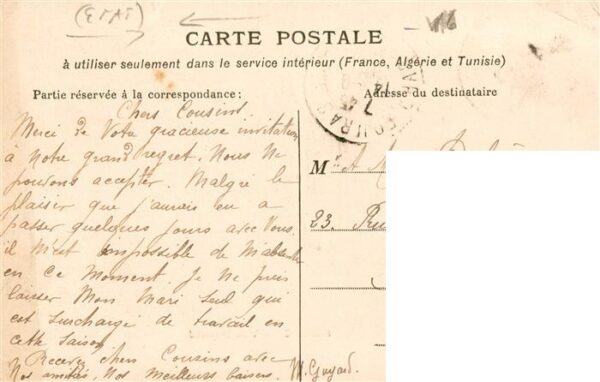 (ETAT)
CARTE POSTALE
à utiliser seulement dans le service intérieur (France, Algérie et Tunisie)
Partie réservée à la correspondance:
Adresse du destinataire
Chers Cousins
Merci de Votre gracieuse invitation
à notre grand regret. Nous ne
pouvons accepter. Malgré le
plaisir que j'aurais eu a
passer quelques jours avec Vous.
il m'est impossible de m'absenter
en ce moment. Je ne puis
laisser Mon Mari seul qui
est surchargé de travail en
cette saison
Recevez chers Cousins avec
Nos amitiés, Nos meilleurs baisers.
M. Guyard.
M
23. Rue